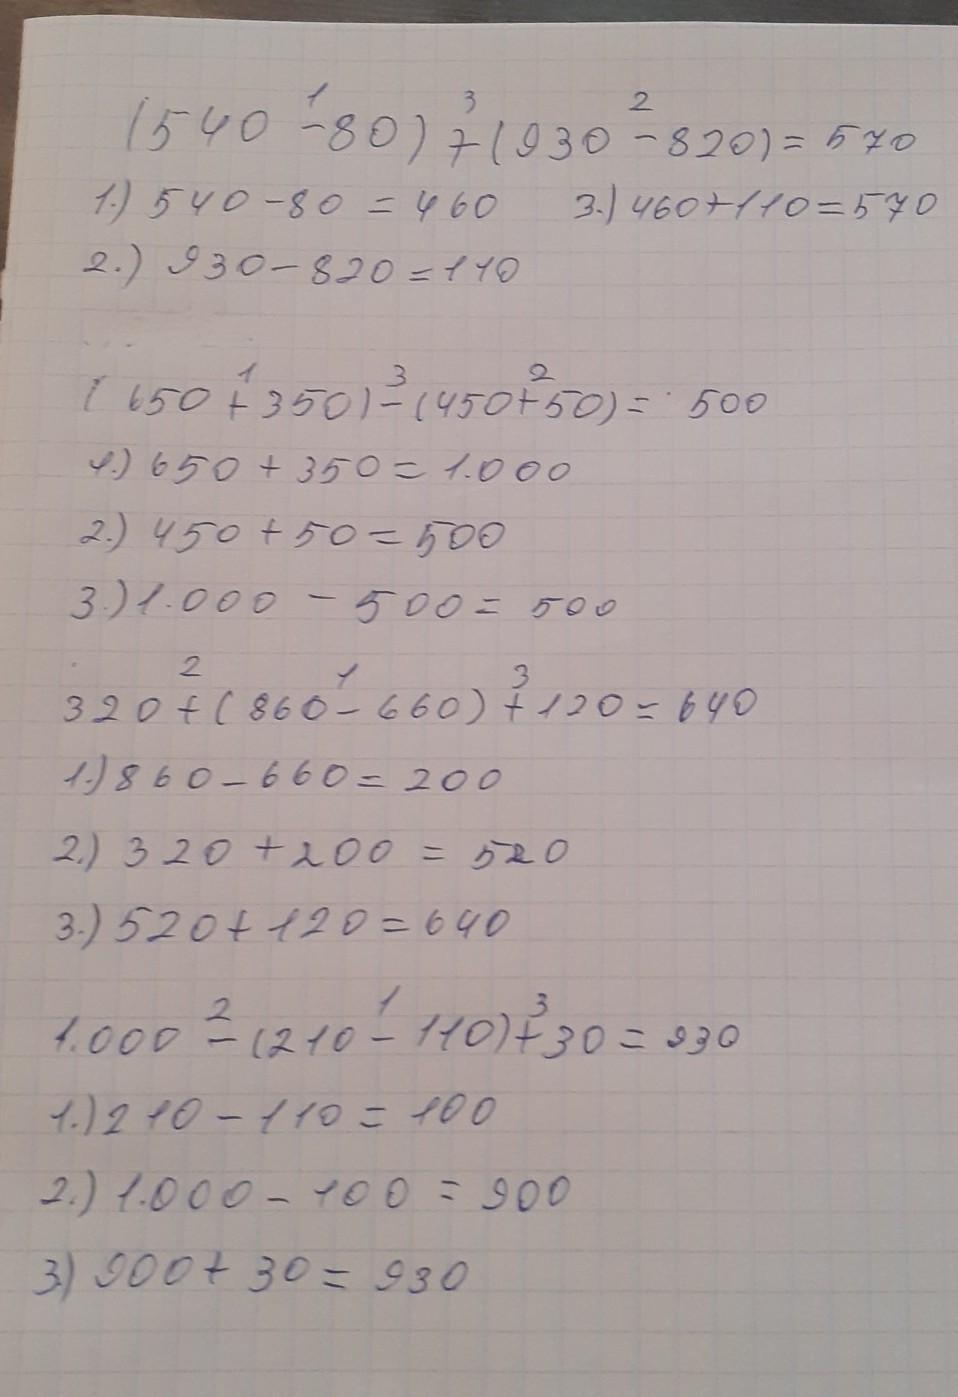 1 3 2
(540-80)+(930-820)=570
1.) 540-80=460 3.) 460+110=570
2.) 930-820=110
1 3 2
(650+350)-(450+50)= 500
1.) 650+350=1.000
2.) 450+50=500
3.) 1.000-500=500
2 1 3
320+(860-660)+120=640
1.) 860-660=200
2.) 320+200=520
3.) 520+120=640
2 1 3
1.000-(210-110)+30=930
1.) 210-110=100
2.) 1.000-100=900
3) 900+30=930